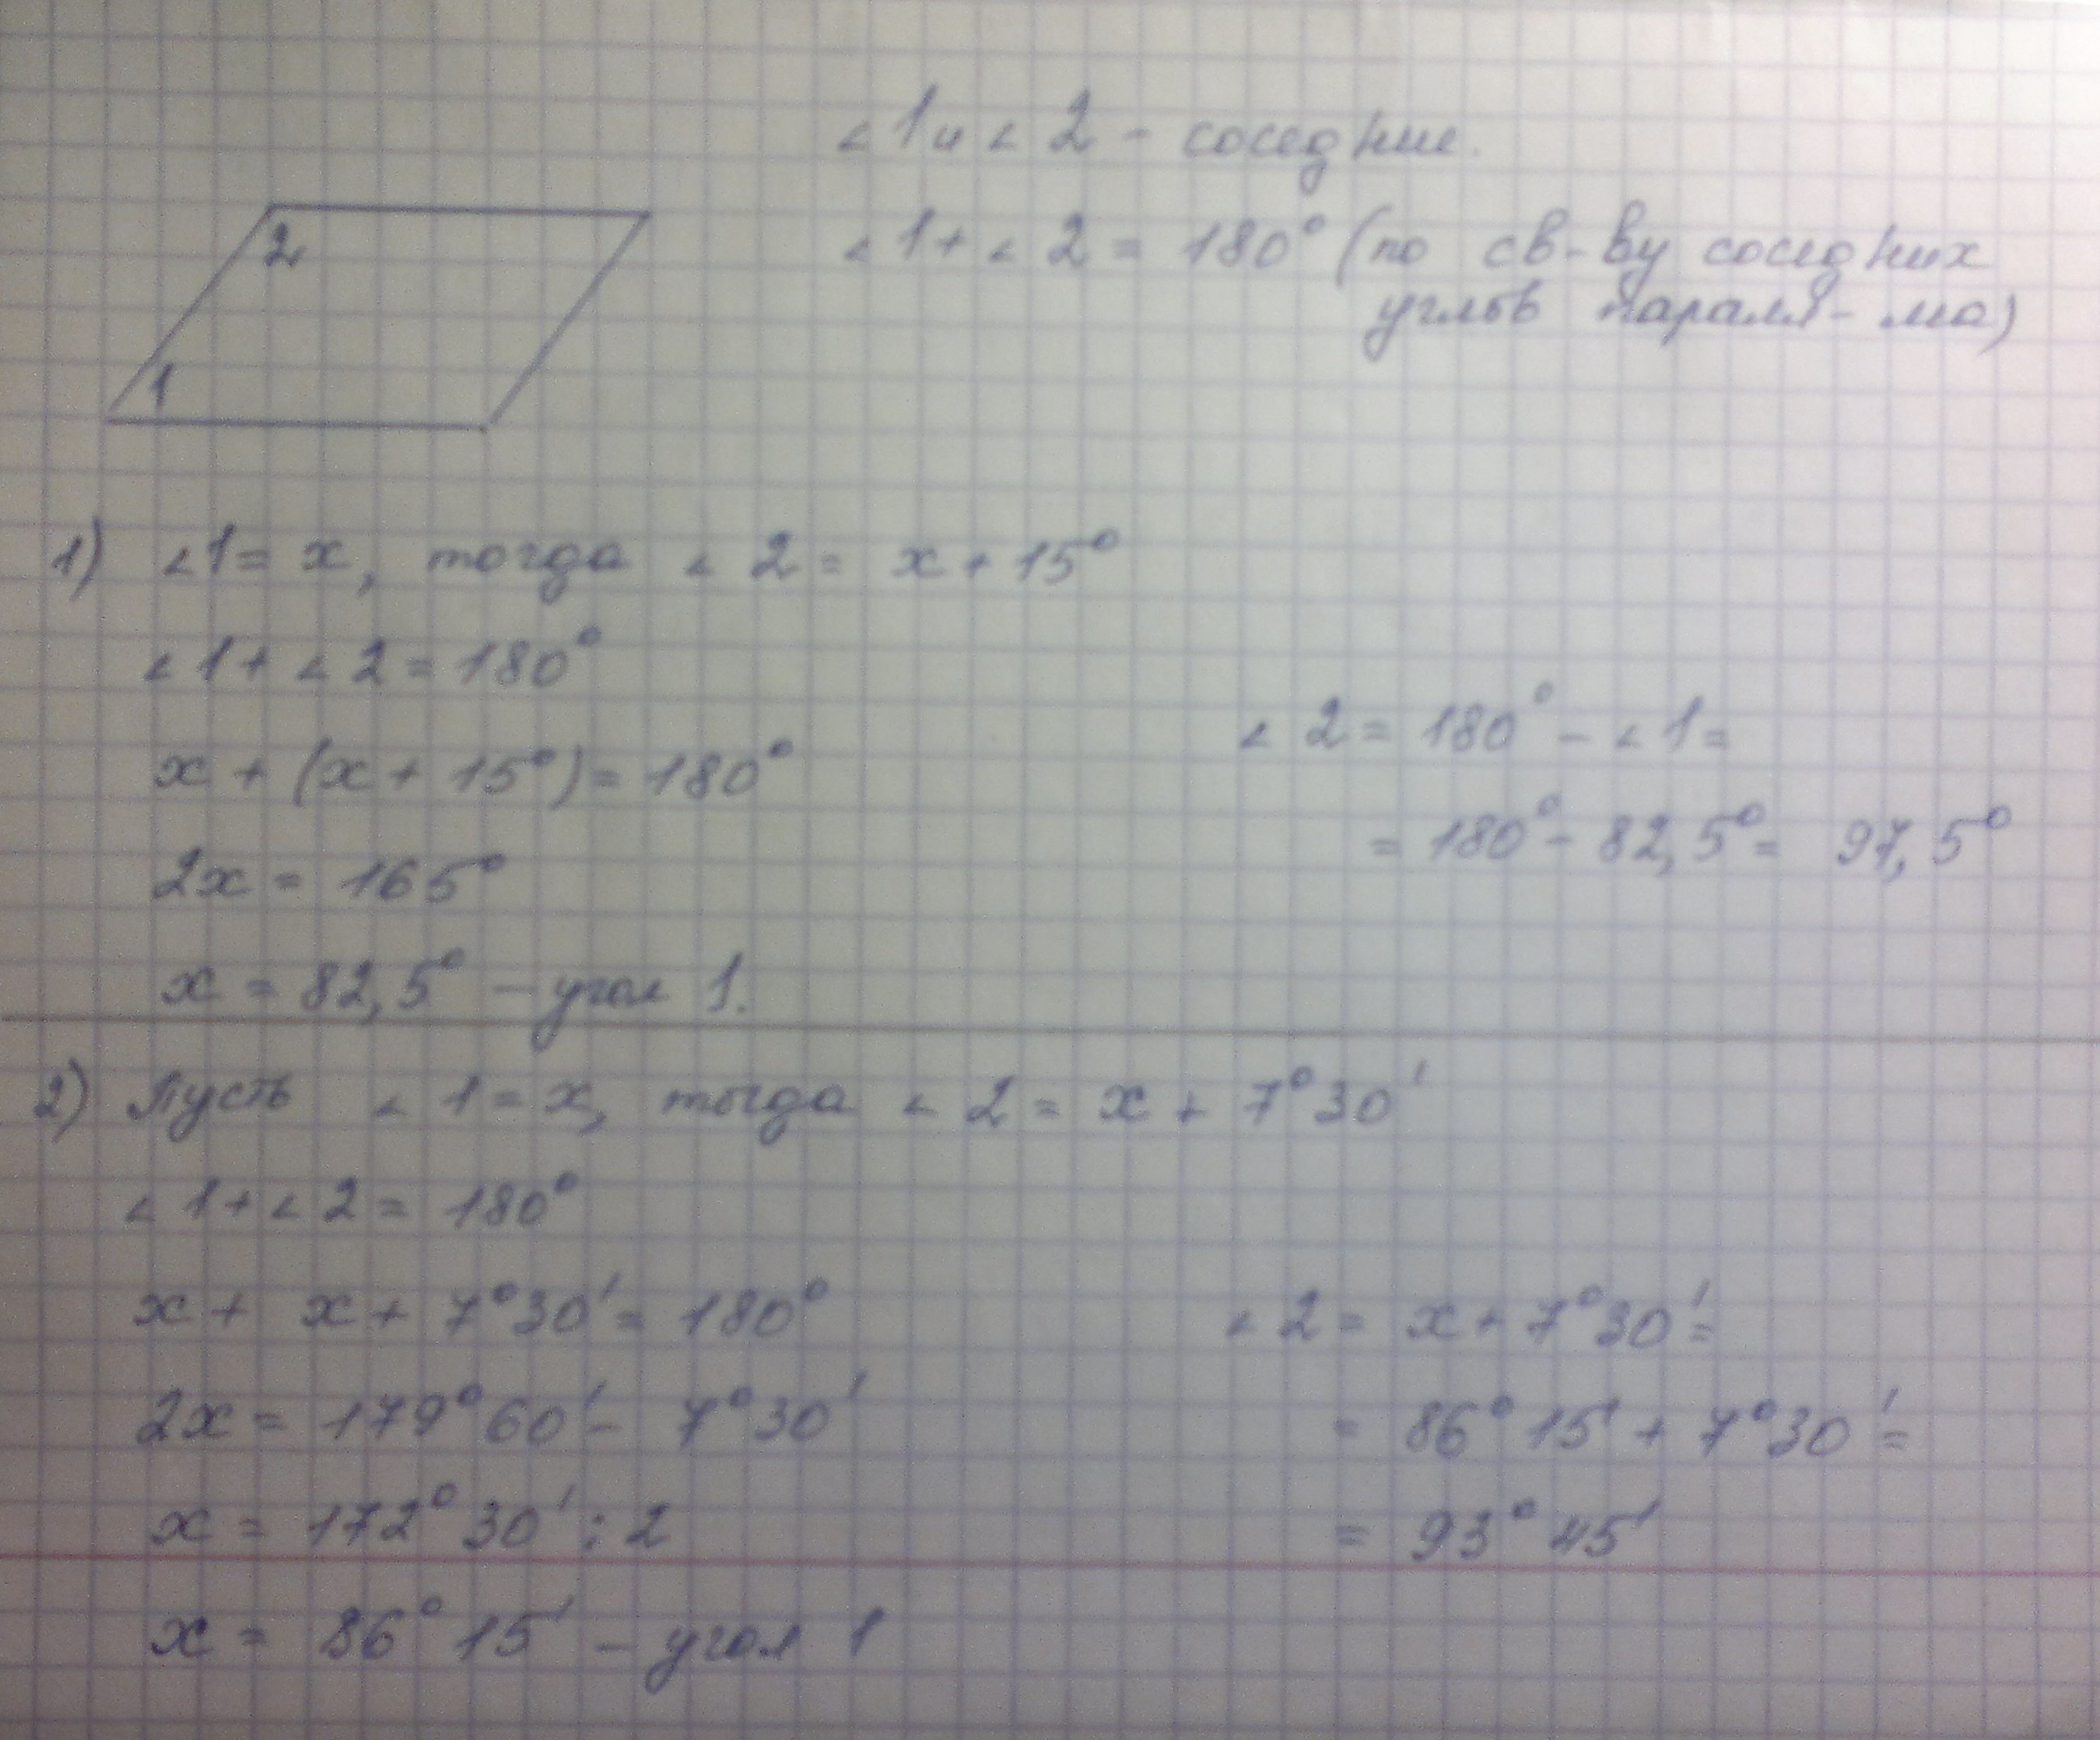 ∠1 и ∠2 - соседние.
∠1 + ∠2 = 180° (по св-ву соседних
углов паралл-ма)
2
1
1) ∠1 = x, тогда ∠2 = x + 15°
∠1 + ∠2 = 180°
x + (x + 15°) = 180°
2x = 165°
x = 82,5° - угол 1.
∠2 = 180° - ∠1 =
= 180° - 82,5° = 97,5°
2) Пусть ∠1 = x, тогда ∠2 = x + 7°30'
∠1 + ∠2 = 180°
x + x + 7°30' = 180°
2x = 179°60' - 7°30'
x = 172°30' : 2
x = 86°15' - угол 1
∠2 = x + 7°30' =
= 86°15' + 7°30' =
= 93°45'